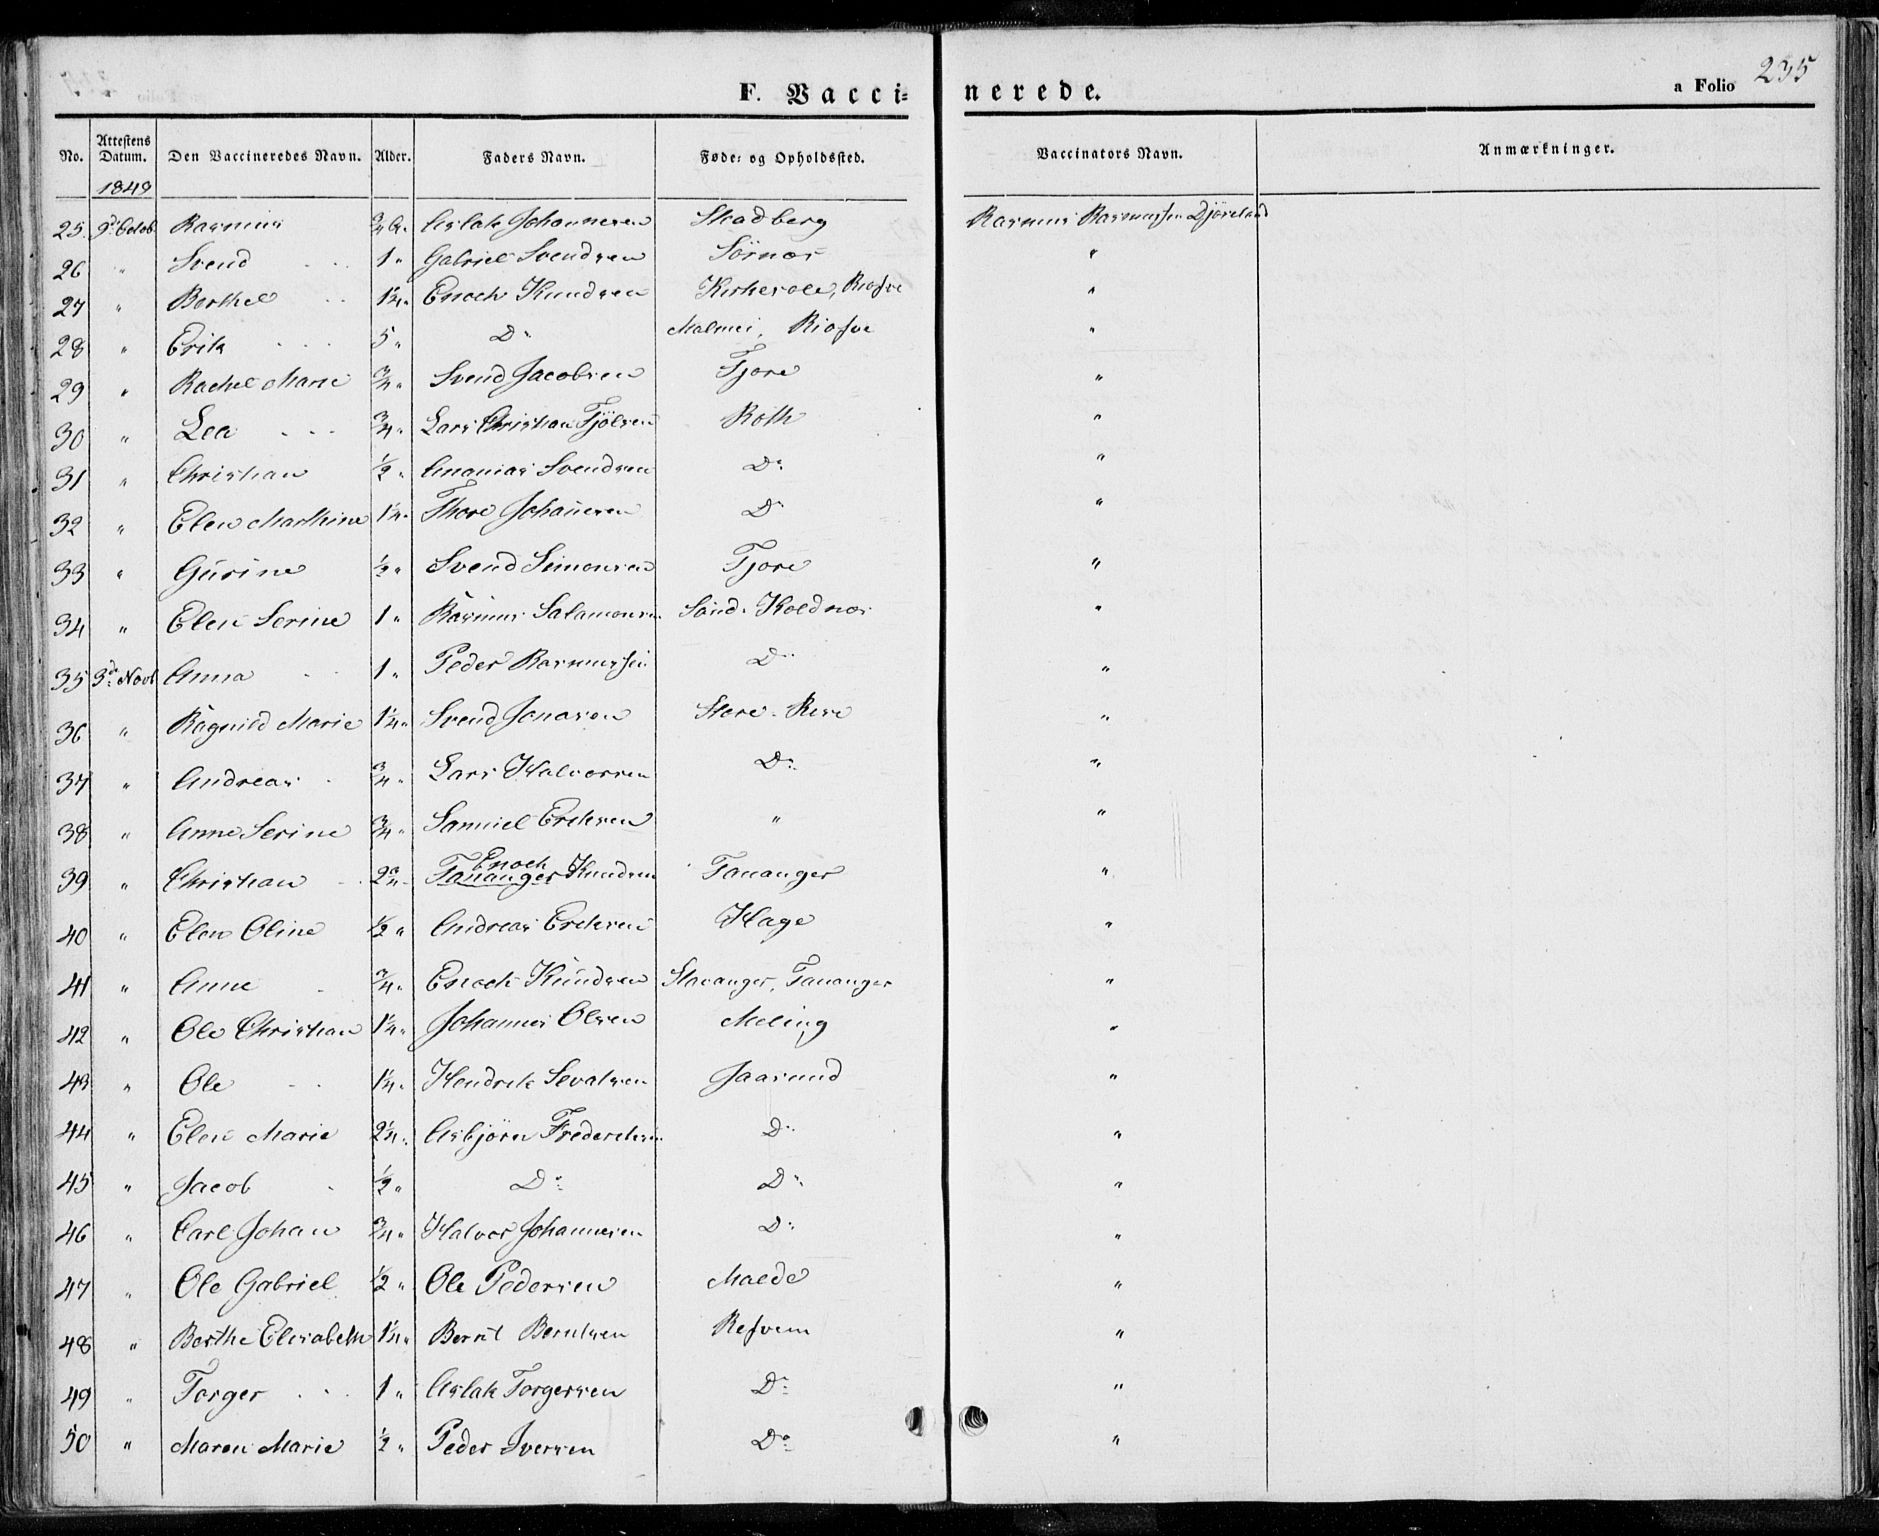 F. Vaccinerede. a Folio 235
No. Attestens Datum. Den Vaccineredes Navn. Alder. Faders Navn. Føde: og Opholdssted. Vaccinators Navn. Anmærkninger.
1849
25 3d Octob Rasmus 3/4 Aslak Johannesen Skadberg Rasmus Rasmussen
26 " Svend 1 " Gabriel Svendsen Sörnæs "
27 " Berthel 1 1/4 " Enoch Knudsen Kirkesole, "
28 " Erik 5 " Do "
29 " Rachel Marie 3/4 " Svend Jacobsen Tjore "
30 " Lea 3/4 " Lars Christian Roth "
31 " Christian 1/2 " Ananias Svendsen Do "
32 " Elen Marthine 1 1/4 " Thore Johansen Do "
33 " Gurine 1/2 " Svend Simonsen Tjore "
34 " Elen Serine 1 " Rasmus Salamonsen Sönd. Koldnæs "
35 3d Novb Anna 1 " Peder Rasmussen Do "
36 " Ragnild Marie 1 1/4 " Svend Jonasen Store Rere "
37 " Andreas 3/4 " Lars Halvorsen Do "
38 " Anne Serine 3/4 " Samuel Ericksen " "
39 " Christian 2 3/4 " Tananger Enoch Knudsen Tananger "
40 " Elen Oline 1/2 " Andreas Ericksen Hage "
41 " Anne 3/4 " Enoch Knudsen Stavanger, Tananger "
42 " Ole Christian 1 1/4 " Johannes Olsen Meling "
43 " Ole 1 1/4 " Hendrik Sevatsen Jaasund "
44 " Elen Marie 2 1/4 " Asbjörn Fredericksen Do "
45 " Jacob 1/2 " Do Do "
46 " Carl Johan 3/4 " Halvor Johannesen Do "
47 " Ole Gabriel 1/2 " Ole Pedersen Malde "
48 " Berthe Elisabeth 1 1/4 " Bernt Berntsen Refvem "
49 " Torger 1 " Aslak Torgersen Do "
50 " Maren Marie 1/2 " Peder Iversen Do "